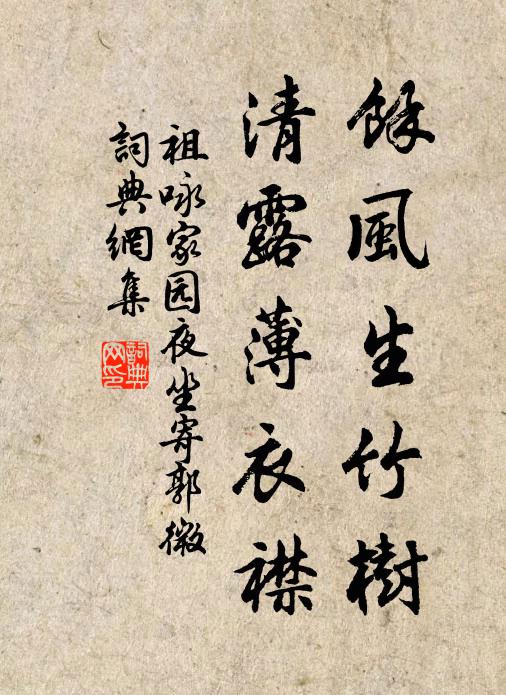 餘風生竹樹
清露薄衣襟
祖咏家园夜坐寄郭微
詞典網集
詞典网印